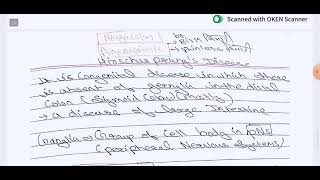 Scanned with OKEN Scanner
Megacolon
Hirschsprung's Disease
It is congenital disease in which there
is absent of ganglia in the distal
Colon (Sigmoid Colon)
→ a disease of Large Intestine
Ganglia → Group of cell body in PNS
(Peripheral Nervous System)